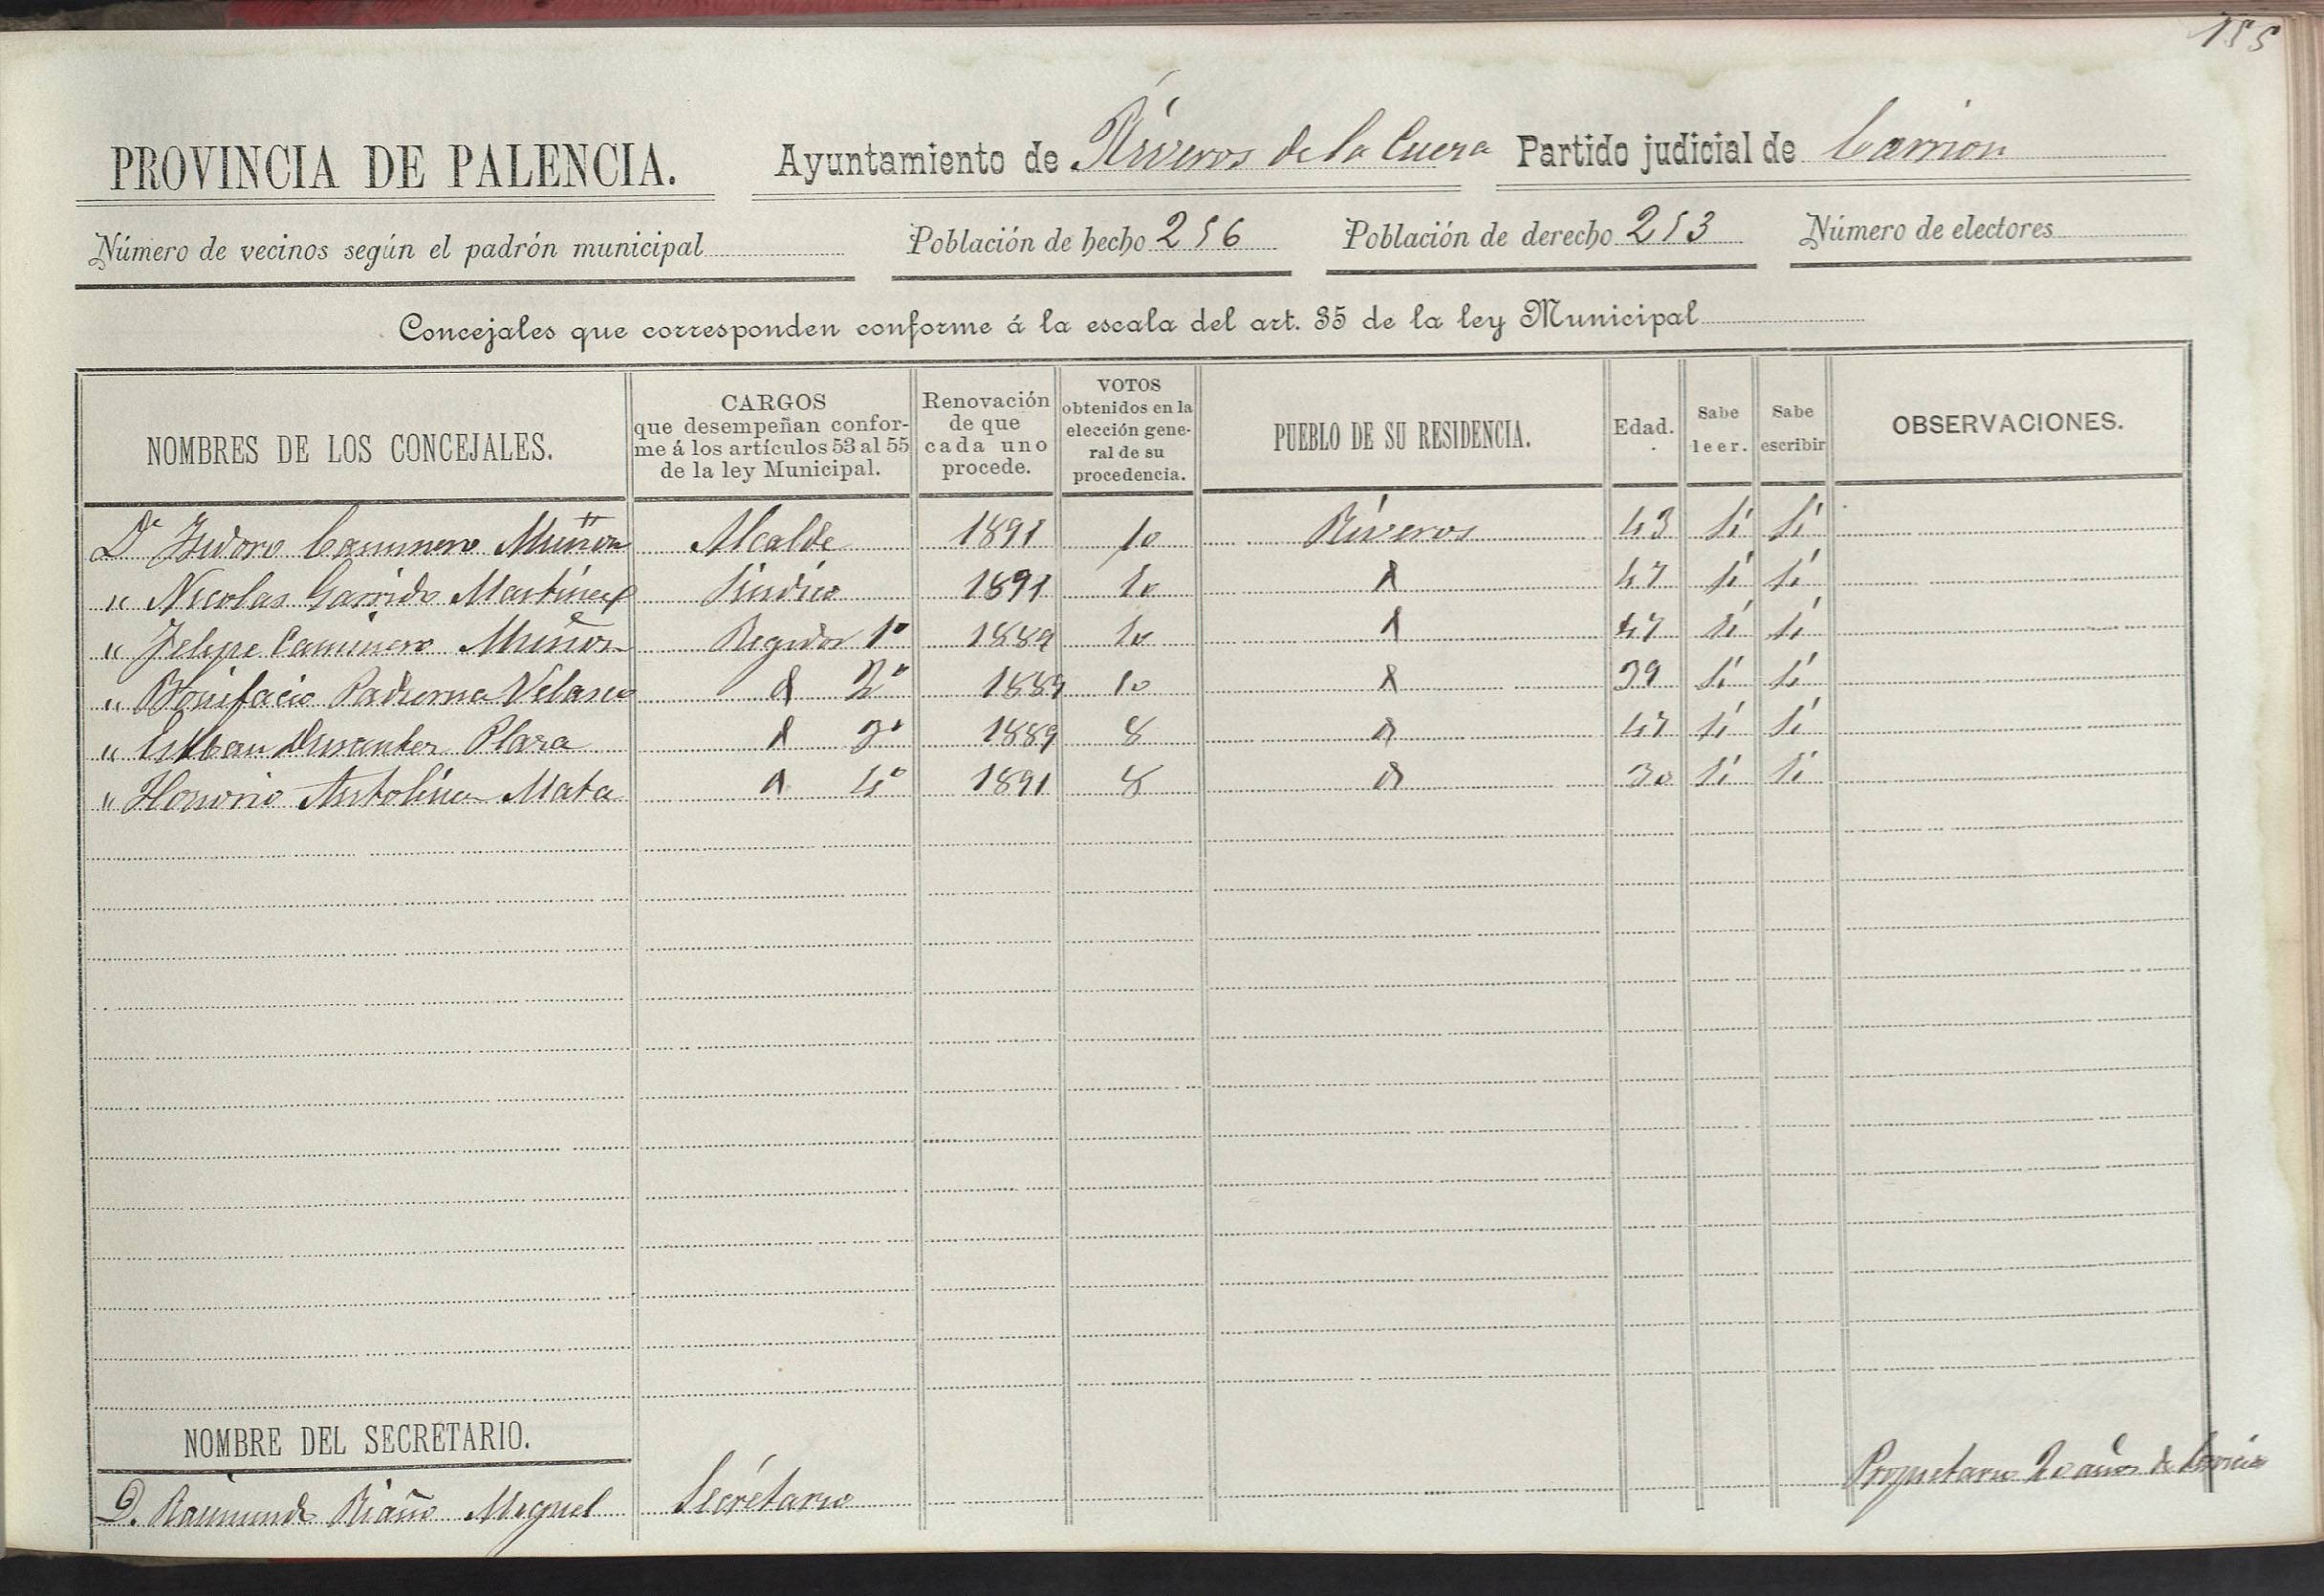 155
PROVINCIA DE PALENCIA. Ayuntamiento de Riveros de la Cueza Partido judicial de Carrion
Número de vecinos según el padrón municipal Población de hecho 256 Población de derecho 253 Número de electores
Concejales que corresponden conforme á la escala del art. 35 de la ley Municipal
NOMBRES DE LOS CONCEJALES. CARGOS que desempeñan conforme á los artículos 53 al 55 de la ley Municipal. Renovación de que cada uno procede. VOTOS obtenidos en la elección general de su procedencia. PUEBLO DE SU RESIDENCIA. Edad. Sabe leer. Sabe escribir OBSERVACIONES.
Dn Isidoro Caminero Muñoz Alcalde 1891 10 Riveros 43 Si Si
" Nicolas Garrido Martinez Sindico 1891 10 47 si si
" Felipe Caminero Muñoz Regidor 1º 1889 10 47 si si
" Bonifacio Padierna Velasco 2º 1889 10 39 si si
" Esteban Plaza 3º 1889 8 47 si si
" Honorio Antolinez Mata 4º 1891 8 30 si si
NOMBRE DEL SECRETARIO.
D. Raimundo Riaño Miguel Secretario Propietario 20 años de servicio